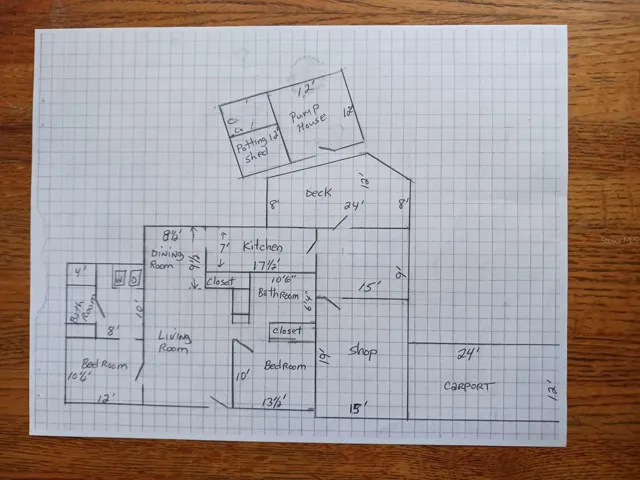 12'
Pump
House
12'
Potting
Shed
12'
Deck
8'
24'
8'
8½'
Dining
Room
9½'
7'
Kitchen
17½'
closet
10'6"
BathRoom
6'4"
9'
15'
4'
W
D
Bath
Room
8'
10'
Living
Room
closet
BedRoom
10½'
12'
BedRoom
10'
13½'
19'
Shop
15'
24'
CARPORT
12'